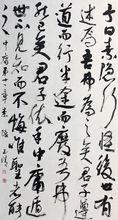 子曰素隱行怪後世有
述焉吾弗為之矣君子遵
道而行半途而廢吾弗能
已矣君子依乎中庸遯
世不見知而不悔唯聖者能
之 中庸第十一章